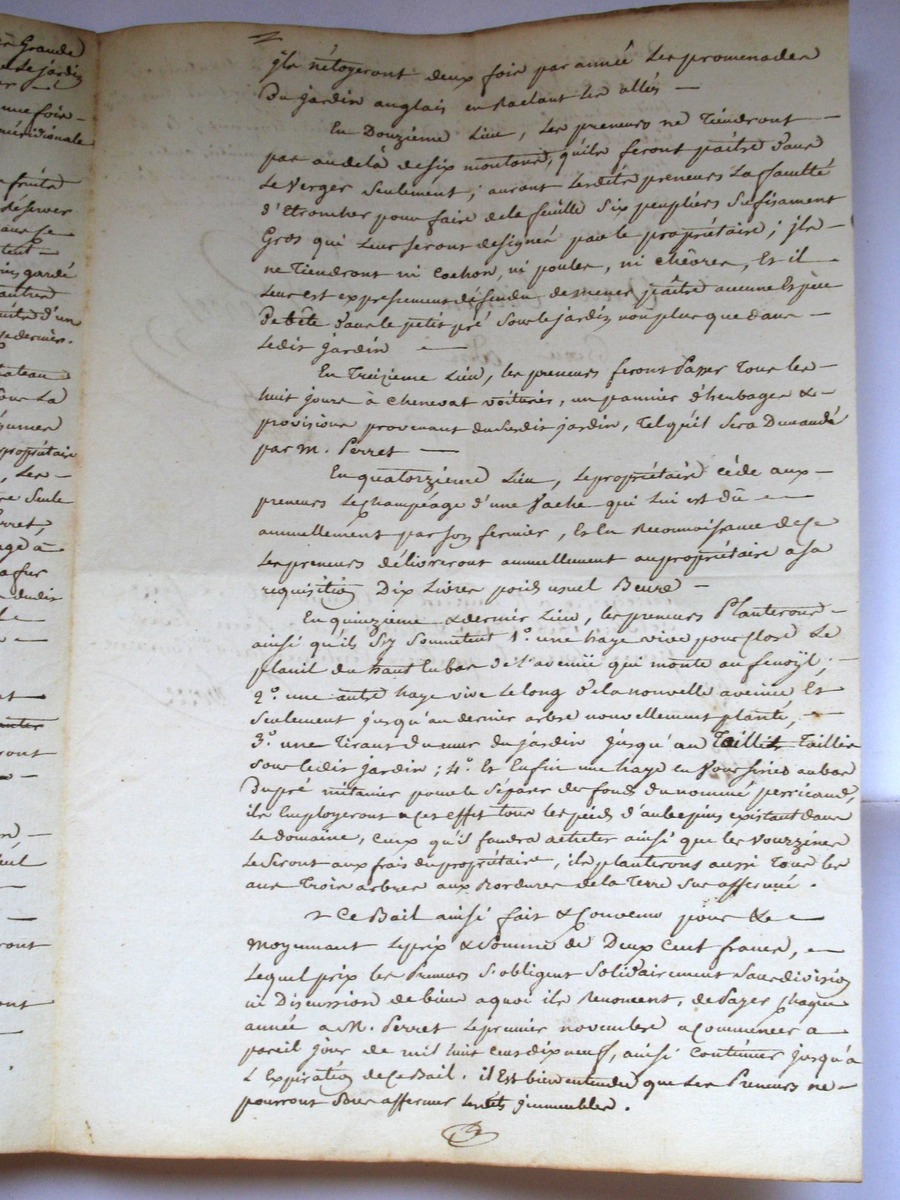 n Grande
Le jardin
une fois -
méridionale
fruits
réserver
gardé
autres
d'un
dernier.
ateau
ou La
propriétaire
, Les -
re Seule
erret,
age à
ront
ront
ils nétoyeront deux fois par année Les promenades
Du jardin anglais en Raclant Les allés —
En Douzieme Lieu, Les preneurs ne Tiendront —
pas audelà de six moutons, qu'ils feront paître dans
Le verger Seulement; auront Lesdits preneurs La faculté
d'Etroncher pour fair de la feuille Six peupliers Sufisament
Gros qui Leur seront designés par le propriétaire; ils —
ne Tiendront ni Cochon, ni poules, ni chêvres, Et il
Leur est expressement défendu de mener paître aucune Espèce
De bête dans le petit pré Sous le jardin non plus que dans —
Ledit jardin —
En Treizieme Lieu, les preneurs feront Passer Tous les
huit jours à Chenevat voiturier, un pannier d'herbages & -
provisions provenant du Susdit jardin, Tel qu'il Sera Demandé
par m. Perret —
En quatorzzieme Lieu, Le propriétaire cède aux —
preneurs Le champéage d'une Vache qui Lui est dû —
annuellement par son fermier, Et En Reconnoissance de Ce
Les preneurs délivreront annuellement au propriétaire a Sa
requisition Dix Livres poids usuel Beure —
En quinzieme & dernier Lieu, les preneurs Planterons —
ainsi qu'ils S'y Soumettent 1.° une haye vive pour Clore Le
planil du haut En bas de L'avenüe qui monte au fenoÿl; —
2.° une autre haye vive Le long de la nouvelle avenüe Et
Seulement jusqu'au dernier arbre nouvellement planté, —
3.° une Tirant du mur du jardin jusqu'au Taillis Taillis
Sous ledit jardin; 4.° Et Enfin une haye en Voursines au bas
Du pré mitanier pour le Séparer du fond du nommé perricaud,
ils Employeront a Cet effet tous les pieds d'aubepins existant dans
Le domaine, Ceux qu'il faudra acheter ainsi que les Vourzines
Le Seront aux frais du propriétaire, ils planterons aussi Tous les
ans Trois arbres aux Bordures de la Terre Sus affermée.
Ce Bail ainsi fait & Convenu pour & —
Moyennant Le prix & Somme de Deux Cent francs, —
Lequel prix les Preneurs S'obligent Solidairement Sans division
ni Discussion de biens a quoi ils Renoncent, de Payer Chaque
année a M. Perret Le premier novembre a Commencer a
pareil jour de mil huit Cent dix neuf, ainsi Continuer jusqu'à
L'Expiration de Ce Bail. il Est bien entendu que Les Preneurs ne —
pourront Sous affermer Lesdits immeubles.